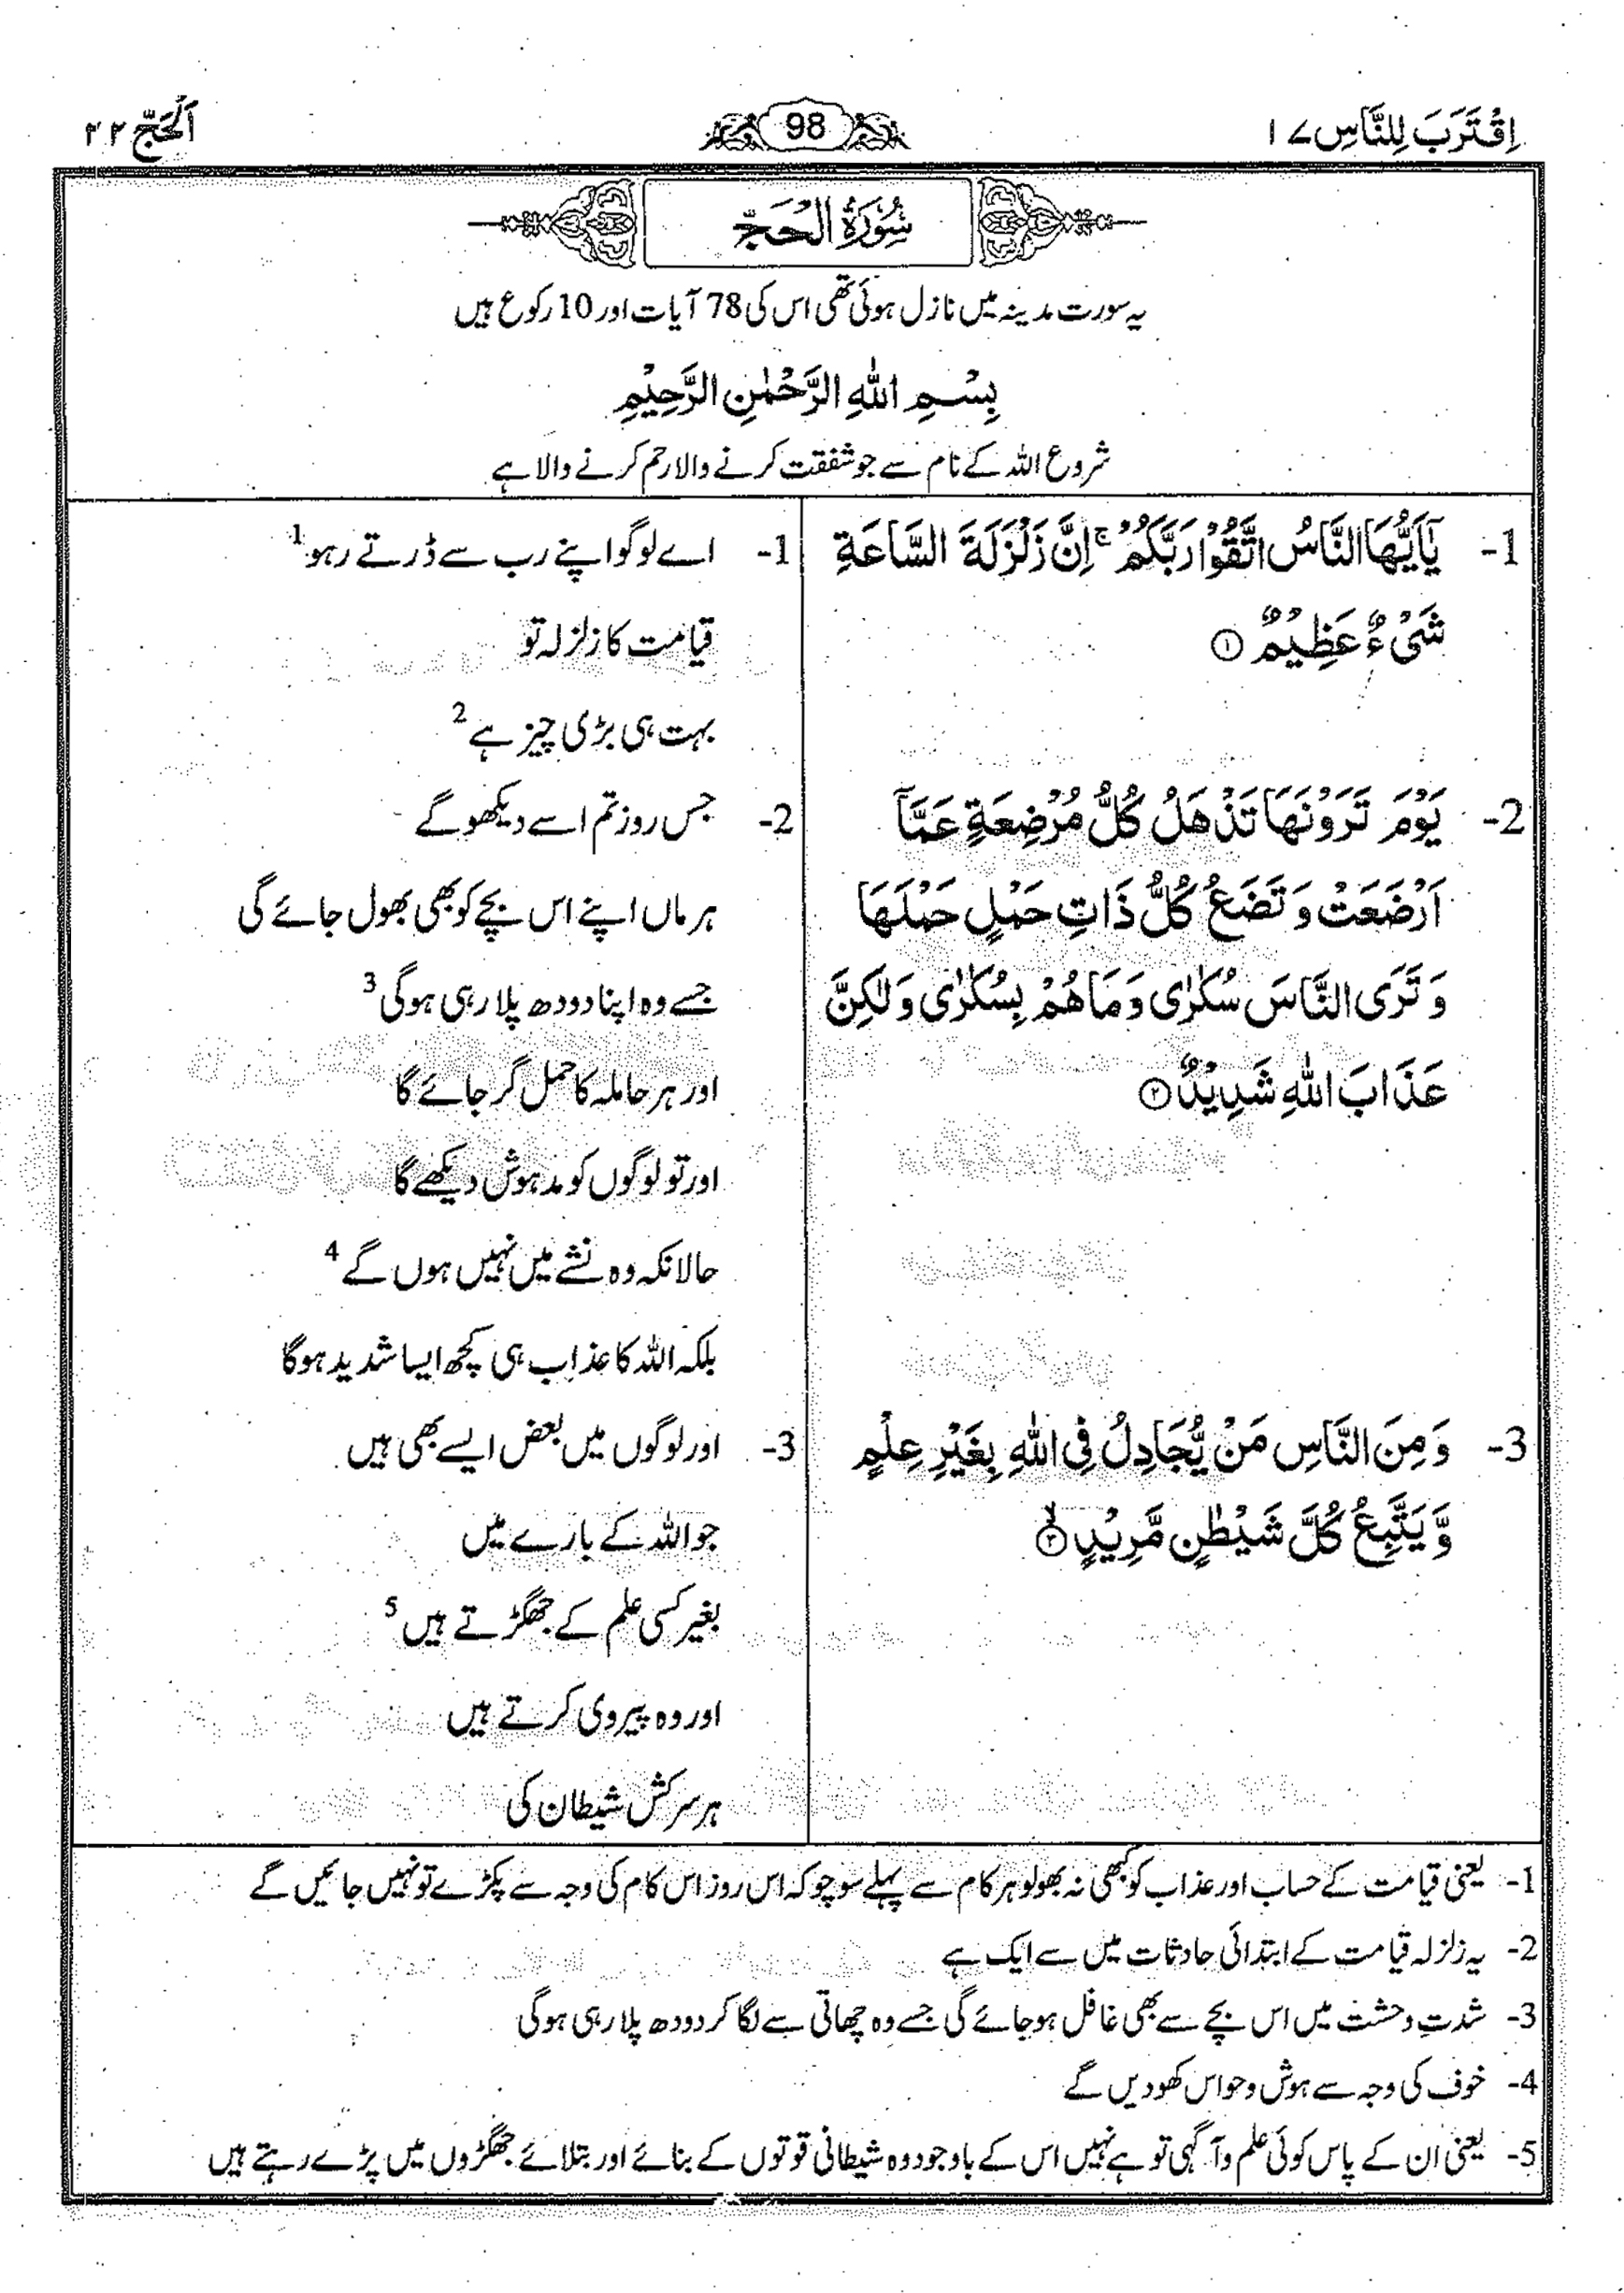 اِقْتَرَبَ لِلنَّاسِ ۱۷
98
اَلْحَجّ ۲۲
سُوْرَةُ الْحَجِّ
یہ سورت مدینہ میں نازل ہوئی تھی اس کی 78 آیات اور 10 رکوع ہیں
بِسْمِ اللّٰهِ الرَّحْمٰنِ الرَّحِيْمِ
شروع اللہ کے نام سے جو شفقت کرنے والا رحم کرنے والا ہے
1- يٰٓاَيُّهَا النَّاسُ اتَّقُوْا رَبَّكُمْ ۚ اِنَّ زَلْزَلَةَ السَّاعَةِ
شَيْءٌ عَظِيْمٌ ①
2- يَوْمَ تَرَوْنَهَا تَذْهَلُ كُلُّ مُرْضِعَةٍ عَمَّآ
اَرْضَعَتْ وَ تَضَعُ كُلُّ ذَاتِ حَمْلٍ حَمْلَهَا
وَ تَرَى النَّاسَ سُكٰرٰى وَ مَا هُمْ بِسُكٰرٰى وَ لٰكِنَّ
عَذَابَ اللّٰهِ شَدِيْدٌ ②
3- وَ مِنَ النَّاسِ مَنْ يُّجَادِلُ فِي اللّٰهِ بِغَيْرِ عِلْمٍ
وَّ يَتَّبِعُ كُلَّ شَيْطٰنٍ مَّرِيْدٍ ۙ③
1- اے لوگو اپنے رب سے ڈرتے رہو 1
قیامت کا زلزلہ تو
بہت ہی بڑی چیز ہے 2
2- جس روز تم اسے دیکھو گے
ہر ماں اپنے اس بچے کو بھی بھول جائے گی
جسے وہ اپنا دودھ پلا رہی ہو گی 3
اور ہر حاملہ کا حمل گر جائے گا
اور تو لوگوں کو مدہوش دیکھے گا
حالانکہ وہ نشے میں نہیں ہوں گے 4
بلکہ اللہ کا عذاب ہی کچھ ایسا شدید ہو گا
3- اور لوگوں میں بعض ایسے بھی ہیں
جو اللہ کے بارے میں
بغیر کسی علم کے جھگڑتے ہیں 5
اور وہ پیروی کرتے ہیں
ہر سرکش شیطان کی
1- یعنی قیامت کے حساب اور عذاب کو کبھی نہ بھولو ہر کام سے پہلے سوچو کہ اس روز اس کام کی وجہ سے پکڑے تو نہیں جائیں گے
2- یہ زلزلہ قیامت کے ابتدائی حادثات میں سے ایک ہے
3- شدتِ وحشت میں اس بچے سے بھی غافل ہو جائے گی جسے وہ چھاتی سے لگا کر دودھ پلا رہی ہو گی
4- خوف کی وجہ سے ہوش و حواس کھو دیں گے
5- یعنی ان کے پاس کوئی علم و آگہی تو ہے نہیں اس کے باوجود وہ شیطانی قوتوں کے بنائے اور بتلائے جھگڑوں میں پڑے رہتے ہیں